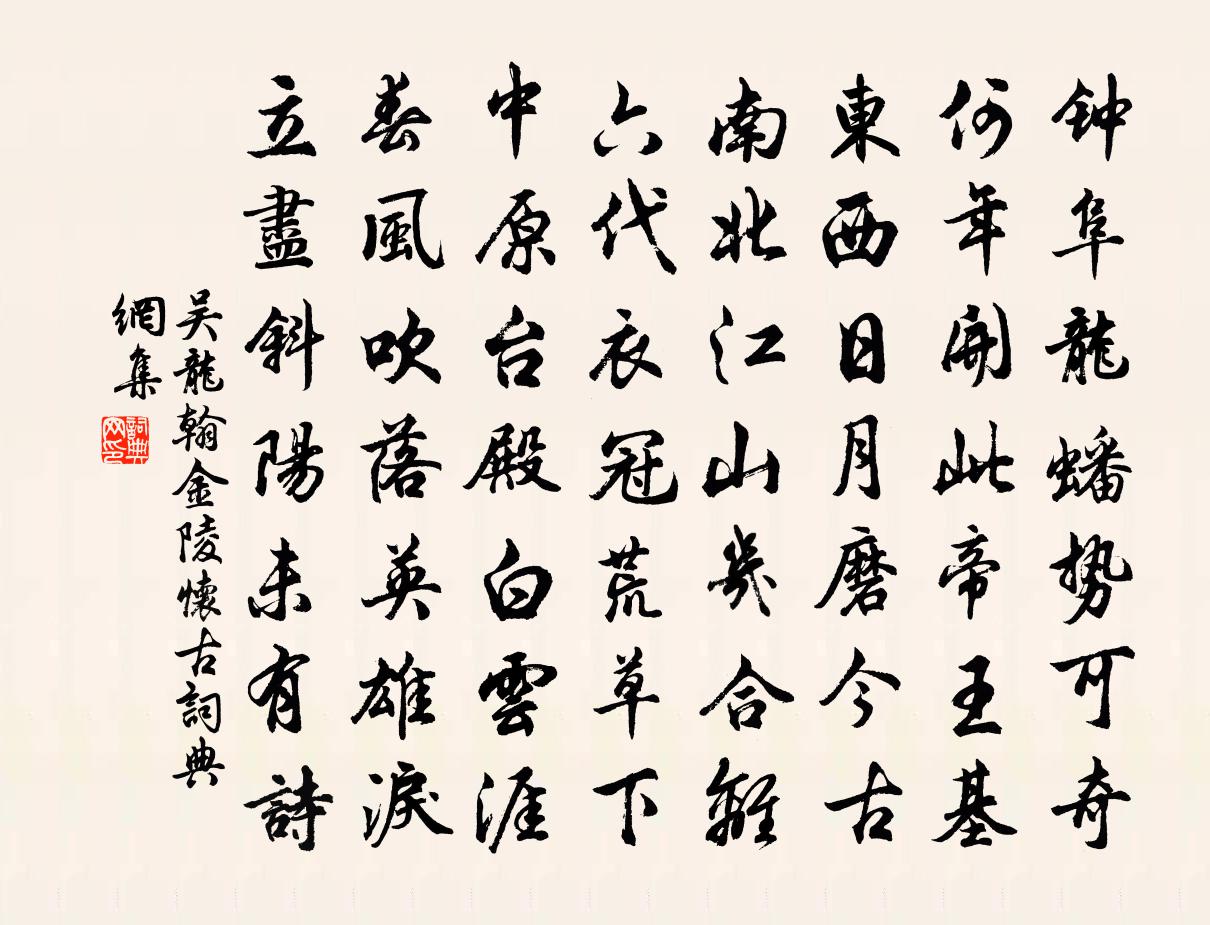 钟阜龍蟠势可奇
何年開此帝王基
東西日月磨今古
南北江山幾合離
六代衣冠荒草下
中原台殿白雲涯
春風吹落英雄淚
立盡斜陽未有詩
吴龍翰金陵懷古詞典
網集
詞典
网印